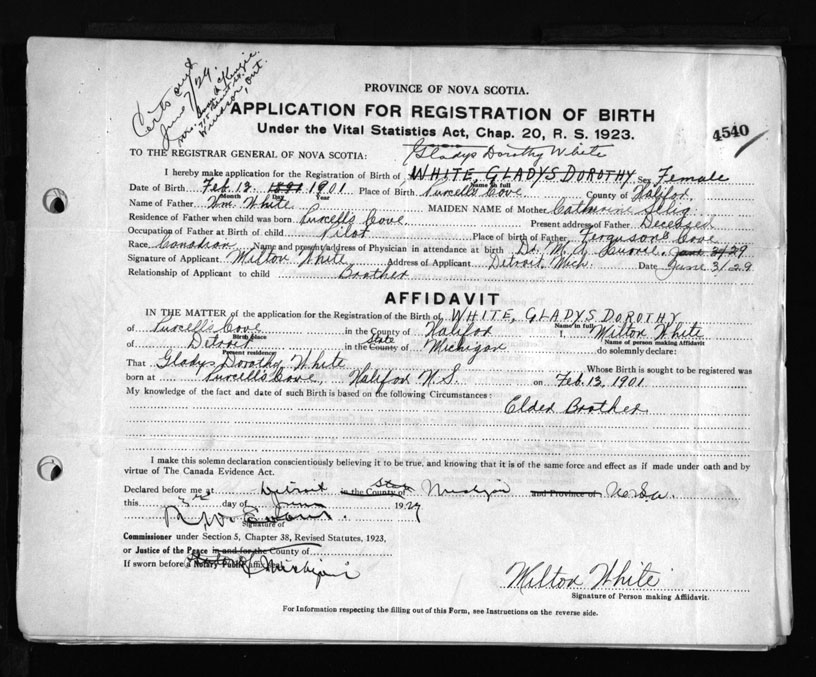 Certs out
June 7/29.
Mrs.
Windsor, Ont.
PROVINCE OF NOVA SCOTIA.
APPLICATION FOR REGISTRATION OF BIRTH
Under the Vital Statistics Act, Chap. 20, R. S. 1923.
4540
TO THE REGISTRAR GENERAL OF NOVA SCOTIA: Gladys Dorothy White
I hereby make application for the Registration of Birth of WHITE, GLADYS DOROTHY Sex Female
Name in full
Date of Birth Feb. 13. 1901 Place of Birth Purcell's Cove County of Halifax
Month Day Year
Name of Father Wm. White MAIDEN NAME of Mother Catharine
Residence of Father when child was born Purcell's Cove Present address of Father Deceased
Occupation of Father at Birth of child Pilot Place of birth of Father Ferguson's Cove
Race Canadian Name and present address of Physician in attendance at birth Dr. M. A. Currie,
Signature of Applicant Milton White Address of Applicant Detroit, Mich. Date June 3/29
Relationship of Applicant to child Brother
AFFIDAVIT
IN THE MATTER of the application for the Registration of the Birth of WHITE, GLADYS DOROTHY
Name in full
of Purcell's Cove in the County of Halifax I, Milton White
Birth place Name of person making Affidavit
of Detroit in the County State of Michigan do solemnly declare:
Present residence
That Gladys Dorothy White Whose Birth is sought to be registered was
born at Purcell's Cove, Halifax N.S. on Feb. 13, 1901
My knowledge of the fact and date of such Birth is based on the following Circumstances:
Elder Brother
I make this solemn declaration conscientiously believing it to be true, and knowing that it is of the same force and effect as if made under oath and by
virtue of The Canada Evidence Act.
Declared before me at Detroit in the County State of Michigan and Province of U.S.a.
this 3rd day of June 1929
R. W. Evans.
Signature of
Commissioner under Section 5, Chapter 38, Revised Statutes, 1923,
or Justice of the Peace in and for the County of
If sworn before a Notary Public affix State of Michigan
Milton White
Signature of Person making Affidavit.
For Information respecting the filling out of this Form, see Instructions on the reverse side.